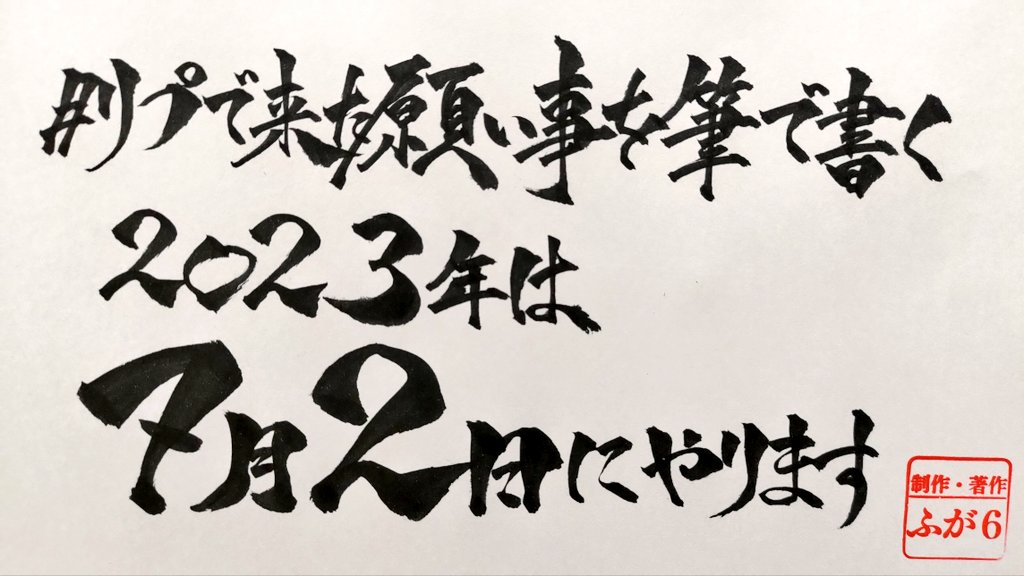 #リプで来た願い事を筆で書く
2023年は
7月2日にやります
制作・著作
ふが6